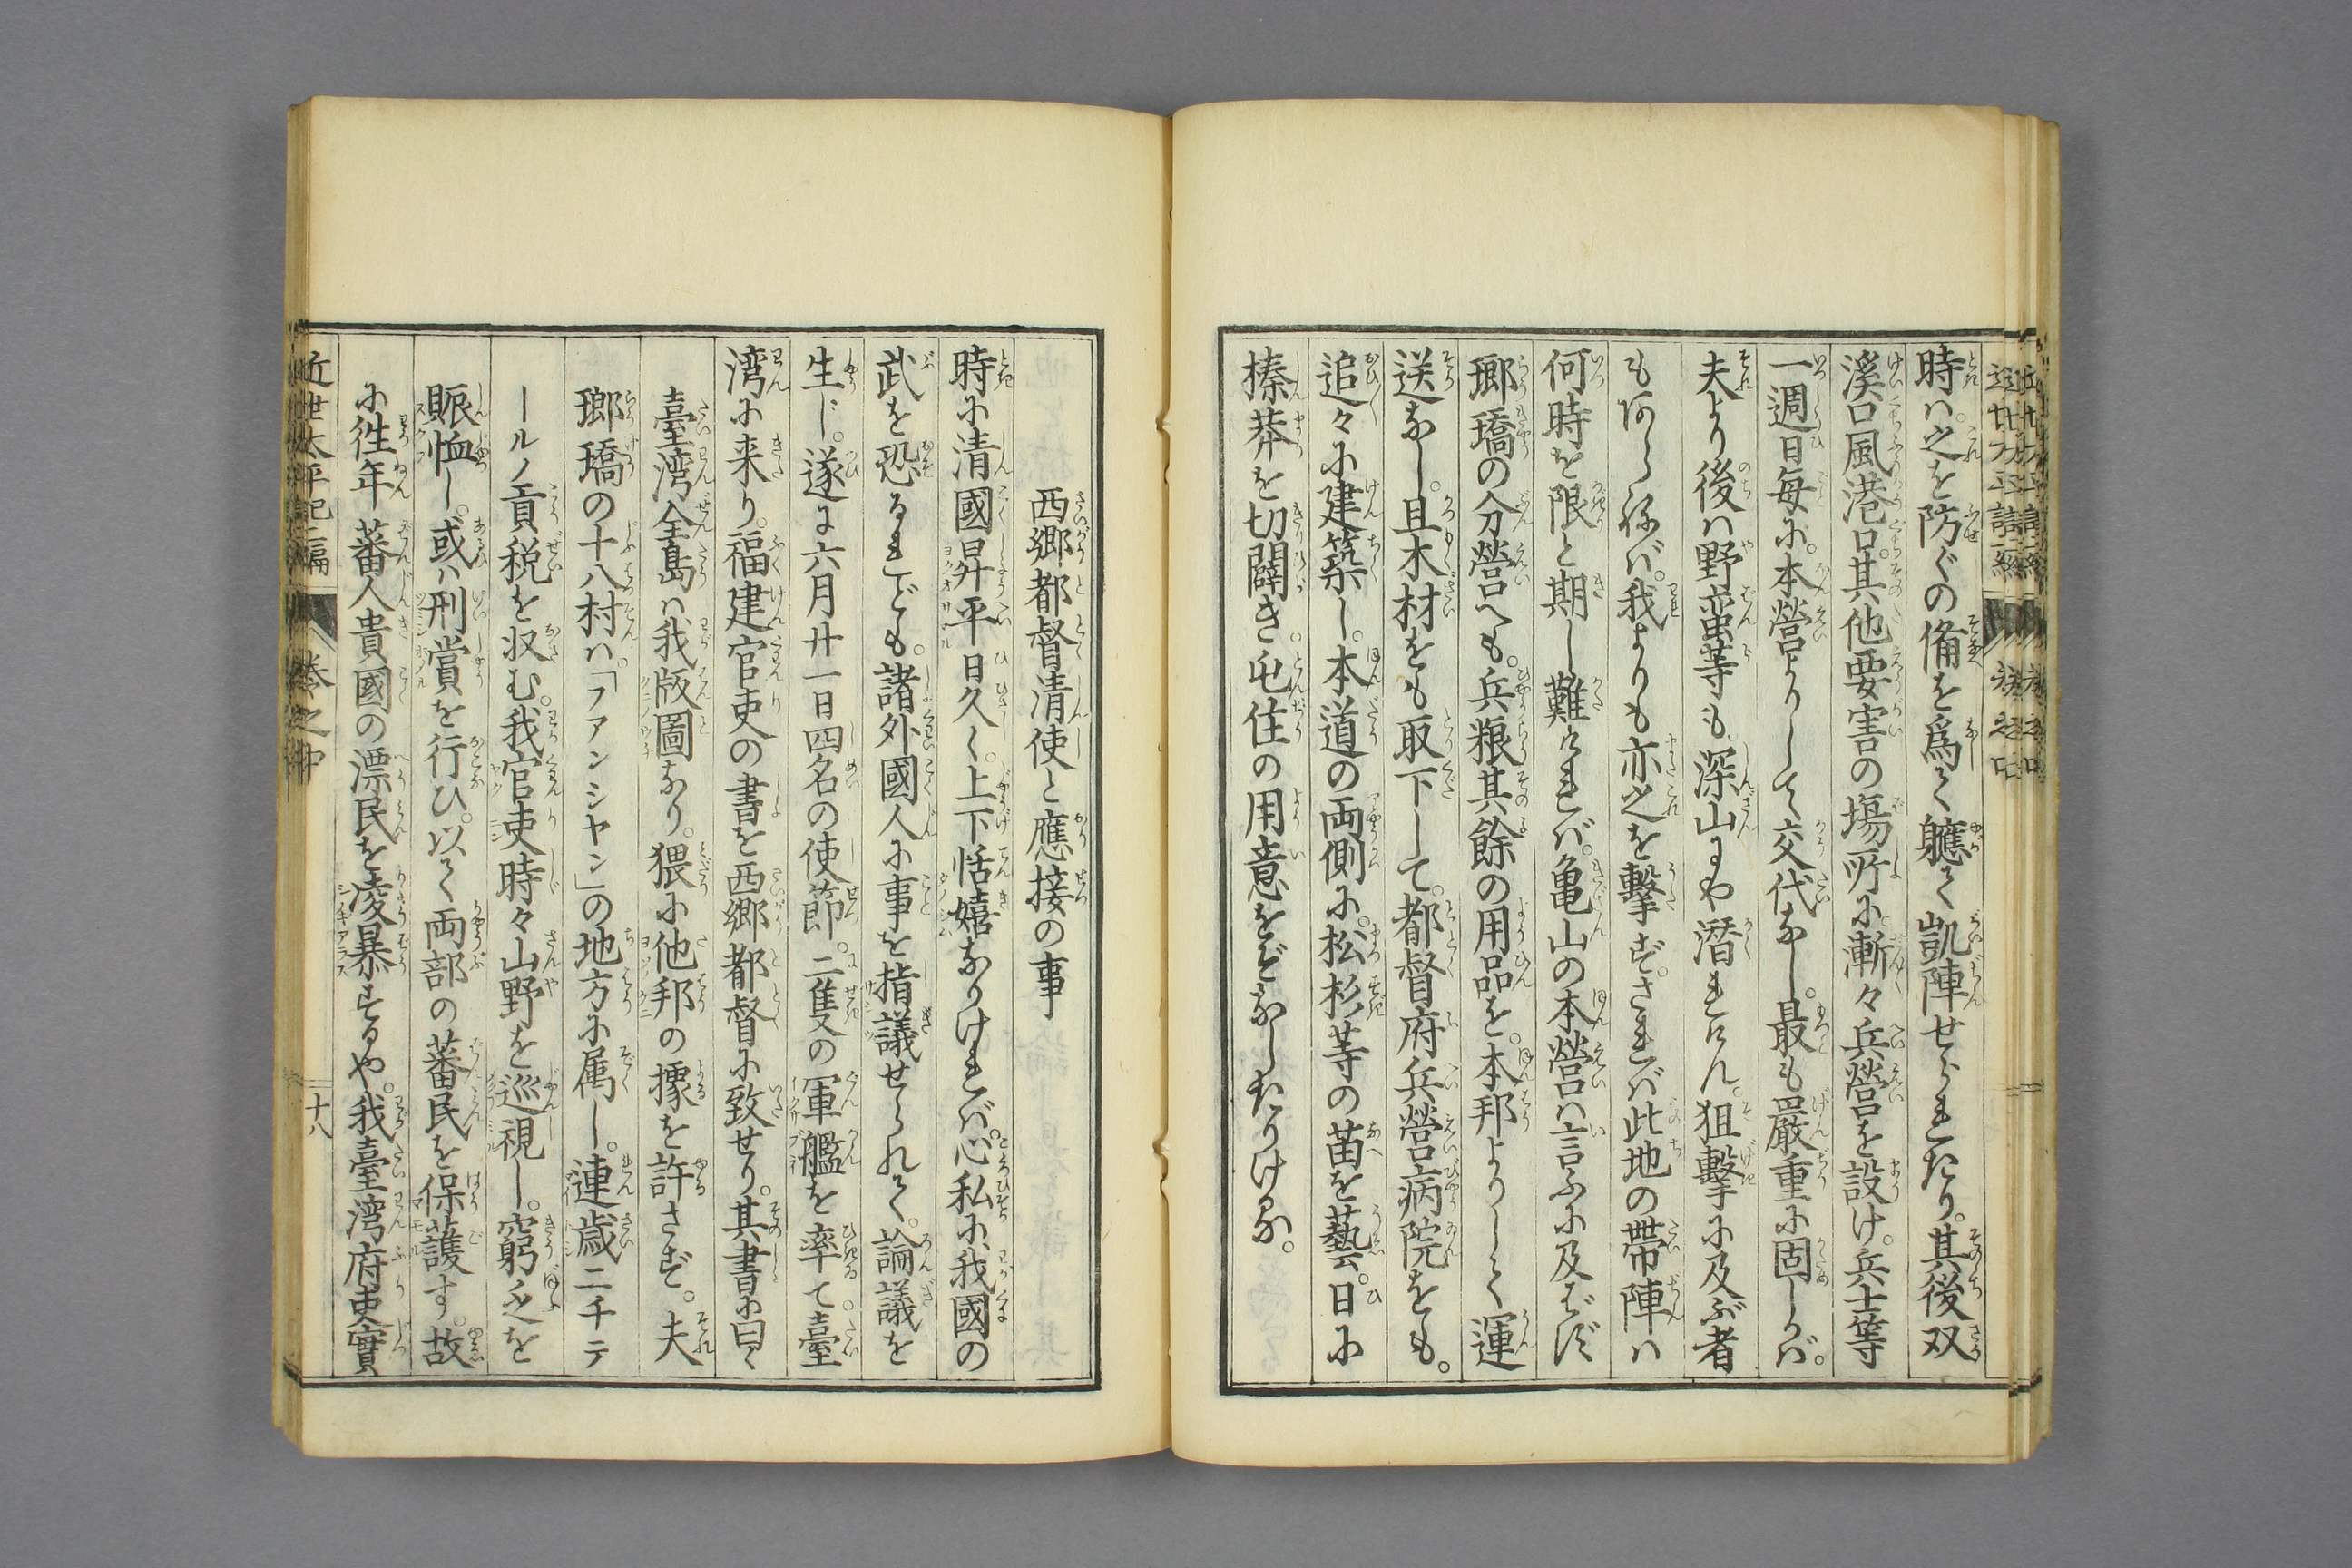 時ハ之を防ぐの備を爲して軈て凱陣せられたり。其後双
溪口風港口。其他要害の塲所に漸々兵營を設け。兵士等
一週日毎に。本營よりして交代なし。最も嚴重に固しかバ。
夫より後ハ野蛮等も。深山にや潜れけん。狙撃に及ぶ者
もあらねバ。我よりも亦之を撃ず。されバ此地の帶陣ハ
何時を限と期し難けれバ。亀山の本營ハ言ふに及バず
瑯𤩝の分營へも。兵粮其餘の用品を。本邦よりして運
送なし。且木材をも取下して。都督府兵營病院をも。
追々に建築し。本道の両側に。松杉等の苗を藝。日に
榛莽を切闢き。屯住の用意をぞなしたりける。
西郷都督清使と應接の事
時に清國昇平日久く。上下恬嬉なりけれバ。心私に我國の
武を恐るれども。諸外國人に事を指議せられて。論議を
生じ。遂に六月廿一日四名の使節。二隻の軍艦を率て。臺
湾に来り。福建官吏の書を西郷都督に致せり。其書に曰く
臺湾全島ハ我版圖なり。猥に他邦の據を許さず。夫
瑯𤩝の十八村ハ「ファンシヤン」の地方に属し。連歳二千テ
ールノ貢税を収む。我官吏時々山野を巡視し。窮乏を
賑恤し。或ハ刑賞を行ひ。以て両部の蕃民を保護す。故
に徃年蕃人貴國の漂民を凌暴するや。我臺湾府吏實
近世太平記二編 巻之中 十八